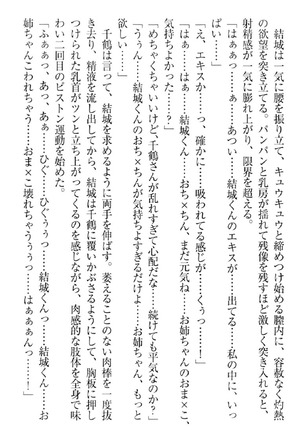 結城は一気に腰を振り立て、キュウキュウと締めつけ始める膣内に、容赦なく灼熱
の欲望を突き立てる。パンパンと乳房が揺れて残像を残すほど激しく突き入れると、
射精感が一気に膨れ上がり、限界を超える。
「はぁぁ……っ……あつい……結城くんのエキスが……出てる……私の中に、いっ
ぱいぃぃ……」
「え、エキスか……っ、確かに……吸われてる感じが……くぅっ……！　千鶴さん、
気持ちよかった……？」
「うん……結城くんのおち×ちん、まだ元気ね……お姉ちゃんのおま×こ、
めちゃくちゃいいけど、千鶴さんが乱れすぎて心配だな……続けても平気なのか？」
「うぅん……結城くんのおち×ちんが気持ちよすぎるだけよ……お姉ちゃん、もっと
欲しい……」
　千鶴は言って、結城を求めるように両手を伸ばす。萎えることのない肉棒を一度引
き去り、精液を流し出してから、結城は千鶴に覆いかぶさるようにして、胸板に押し
つけられた乳首がツンと立ち上がってくるのを感じながら、肉感的な肢体を全身で味
わい二回目のピストン運動を始めた。
「ふぁぁ……あっ、あぁっ……ひぐっ……ひぐぅぅっ……結城くんっ……結城くん……お
姉ちゃんこわれちゃう……おま×こ壊れちゃうぅぅっ……はぁぁぁんっ……！」